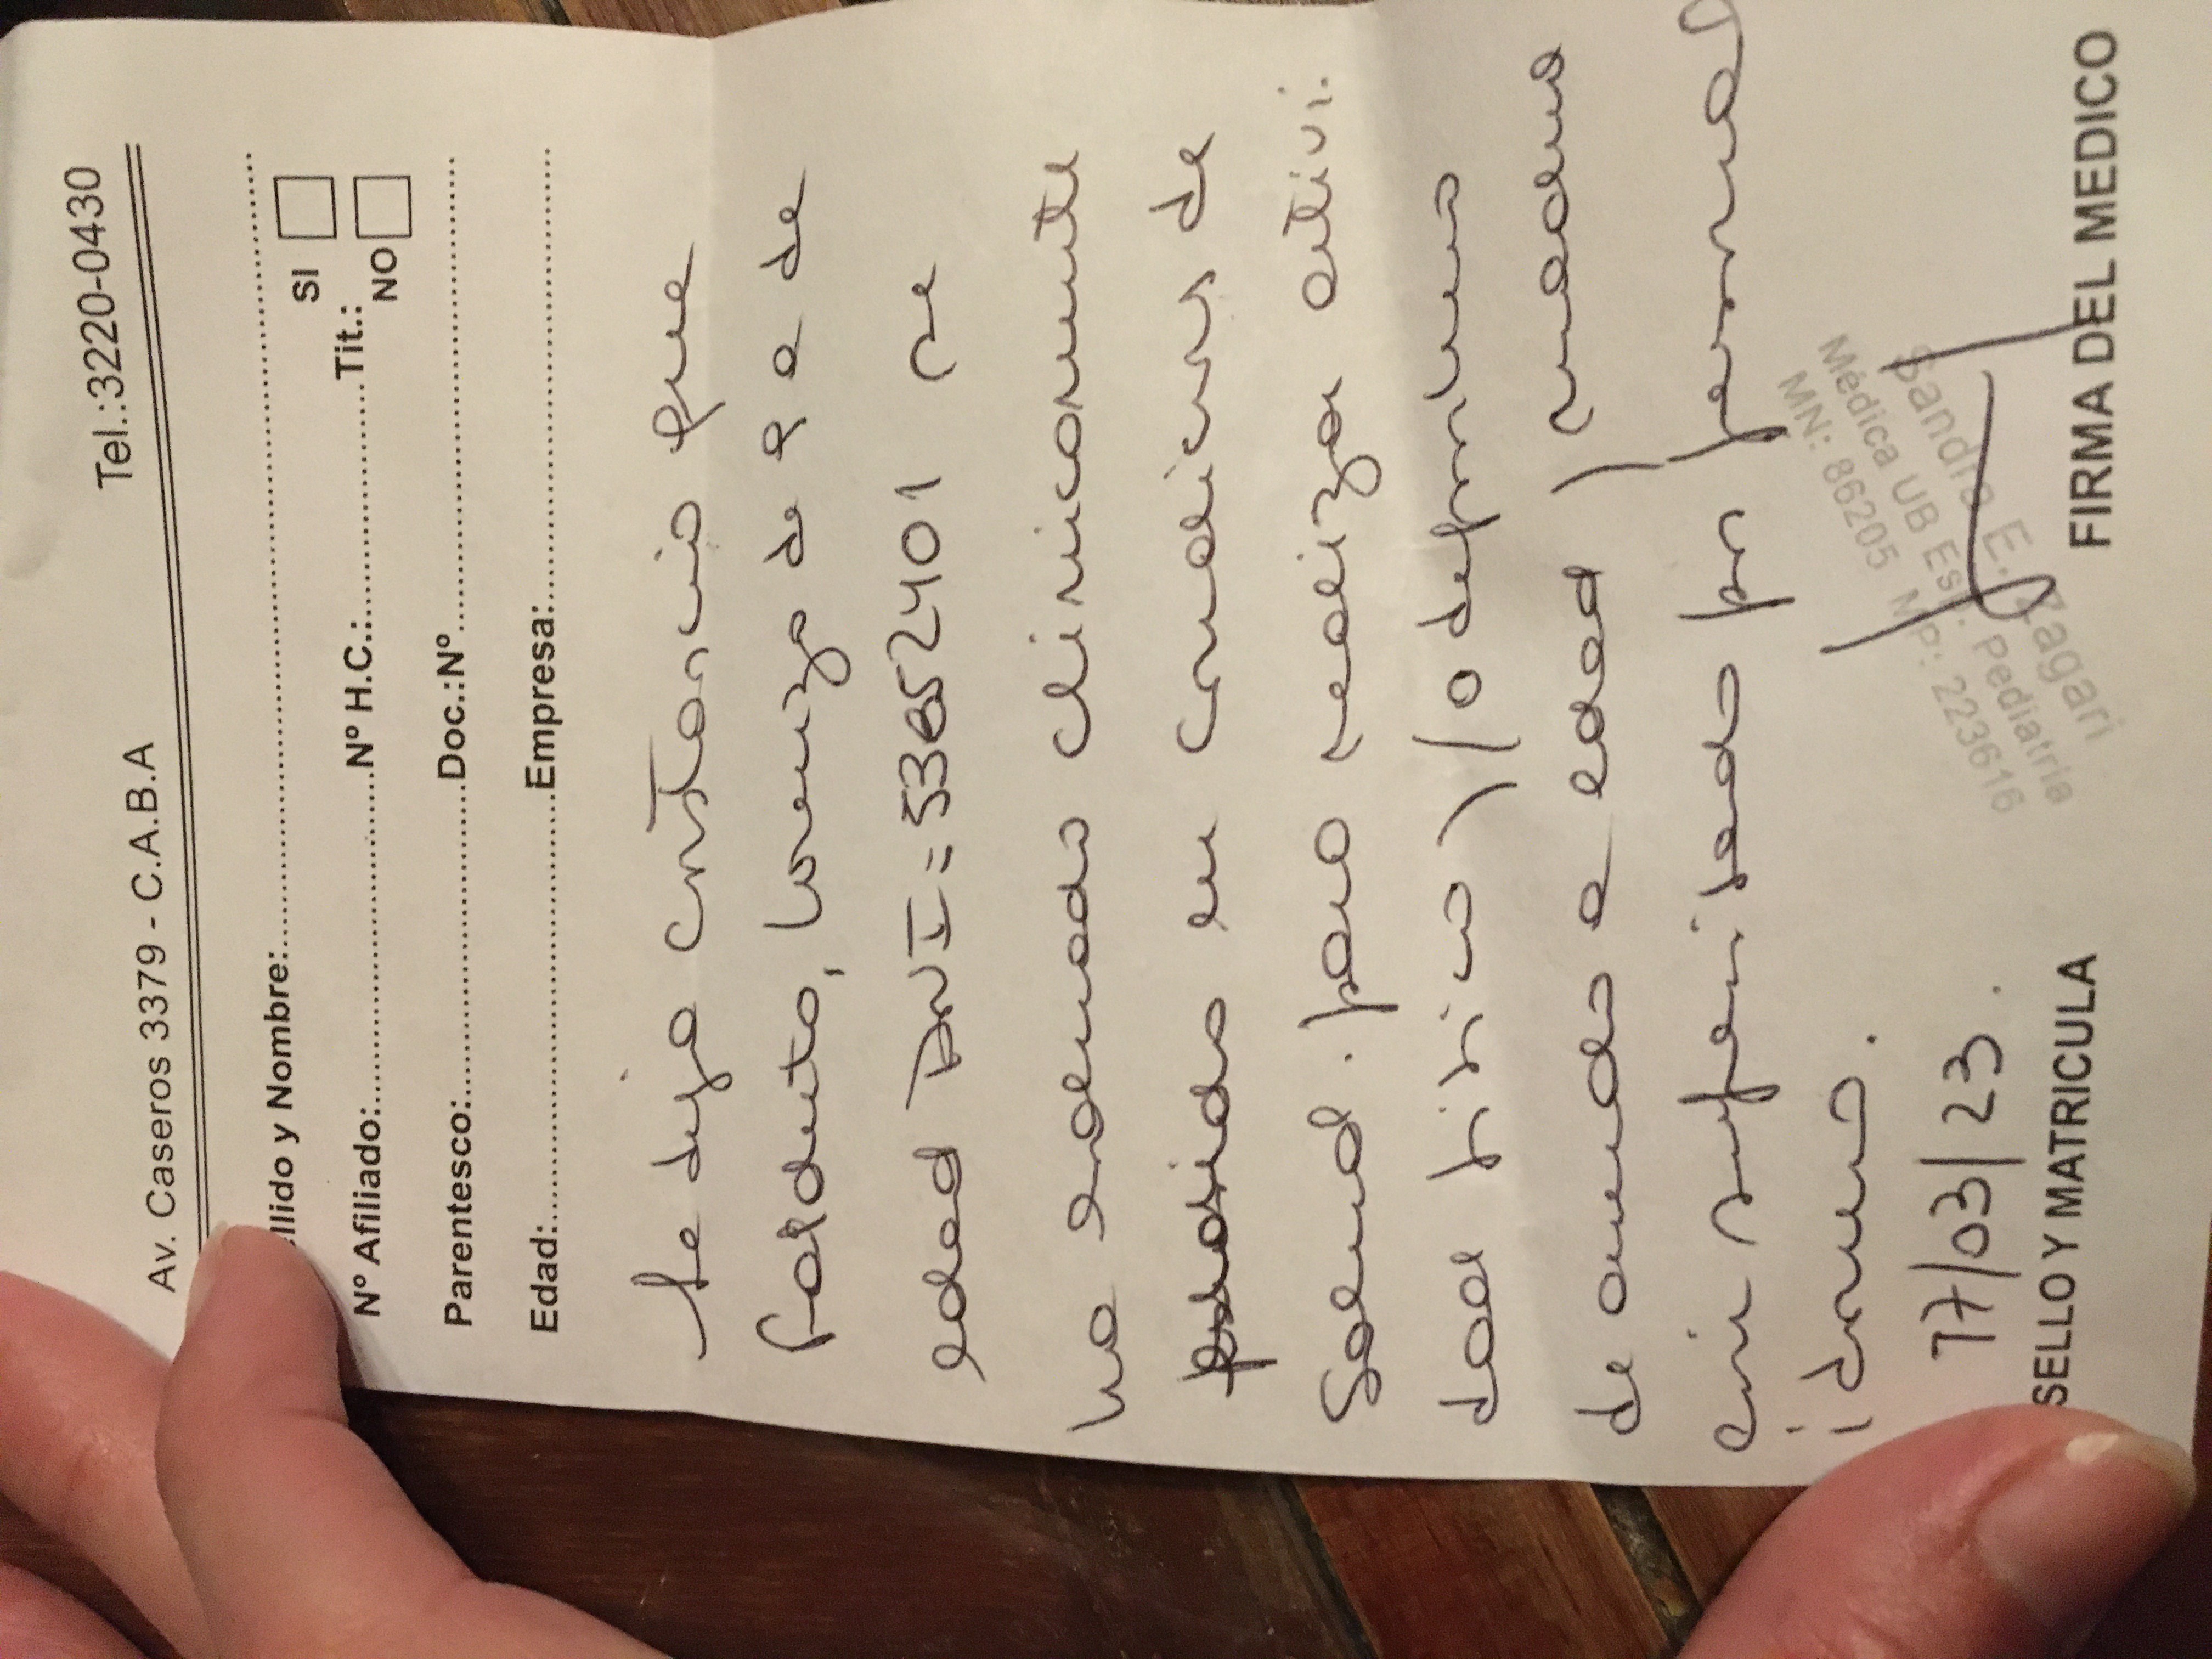 Av. Caseros 3379 - C.A.B.A Tel.:3220-0430
llido y Nombre:
Nº Afiliado: Nº H.C.: Tit.: SI
NO
Parentesco: Doc.:Nº
Edad: Empresa:
Se deja constancia que
Lorenzo de 8 a de
edad DNI = 53652401 se
ha evaluado clinicamente
en condiciones de
Salud. para realizar activi.
dad fisica y/o deportiva
de acuerdo a edad y
sin supervisado por personal
idoneo.
17/03/23.
Sandra E. Zagari
Médica UB Esp. Pediatria
MN: 86205 MP: 223616
SELLO Y MATRICULA FIRMA DEL MEDICO